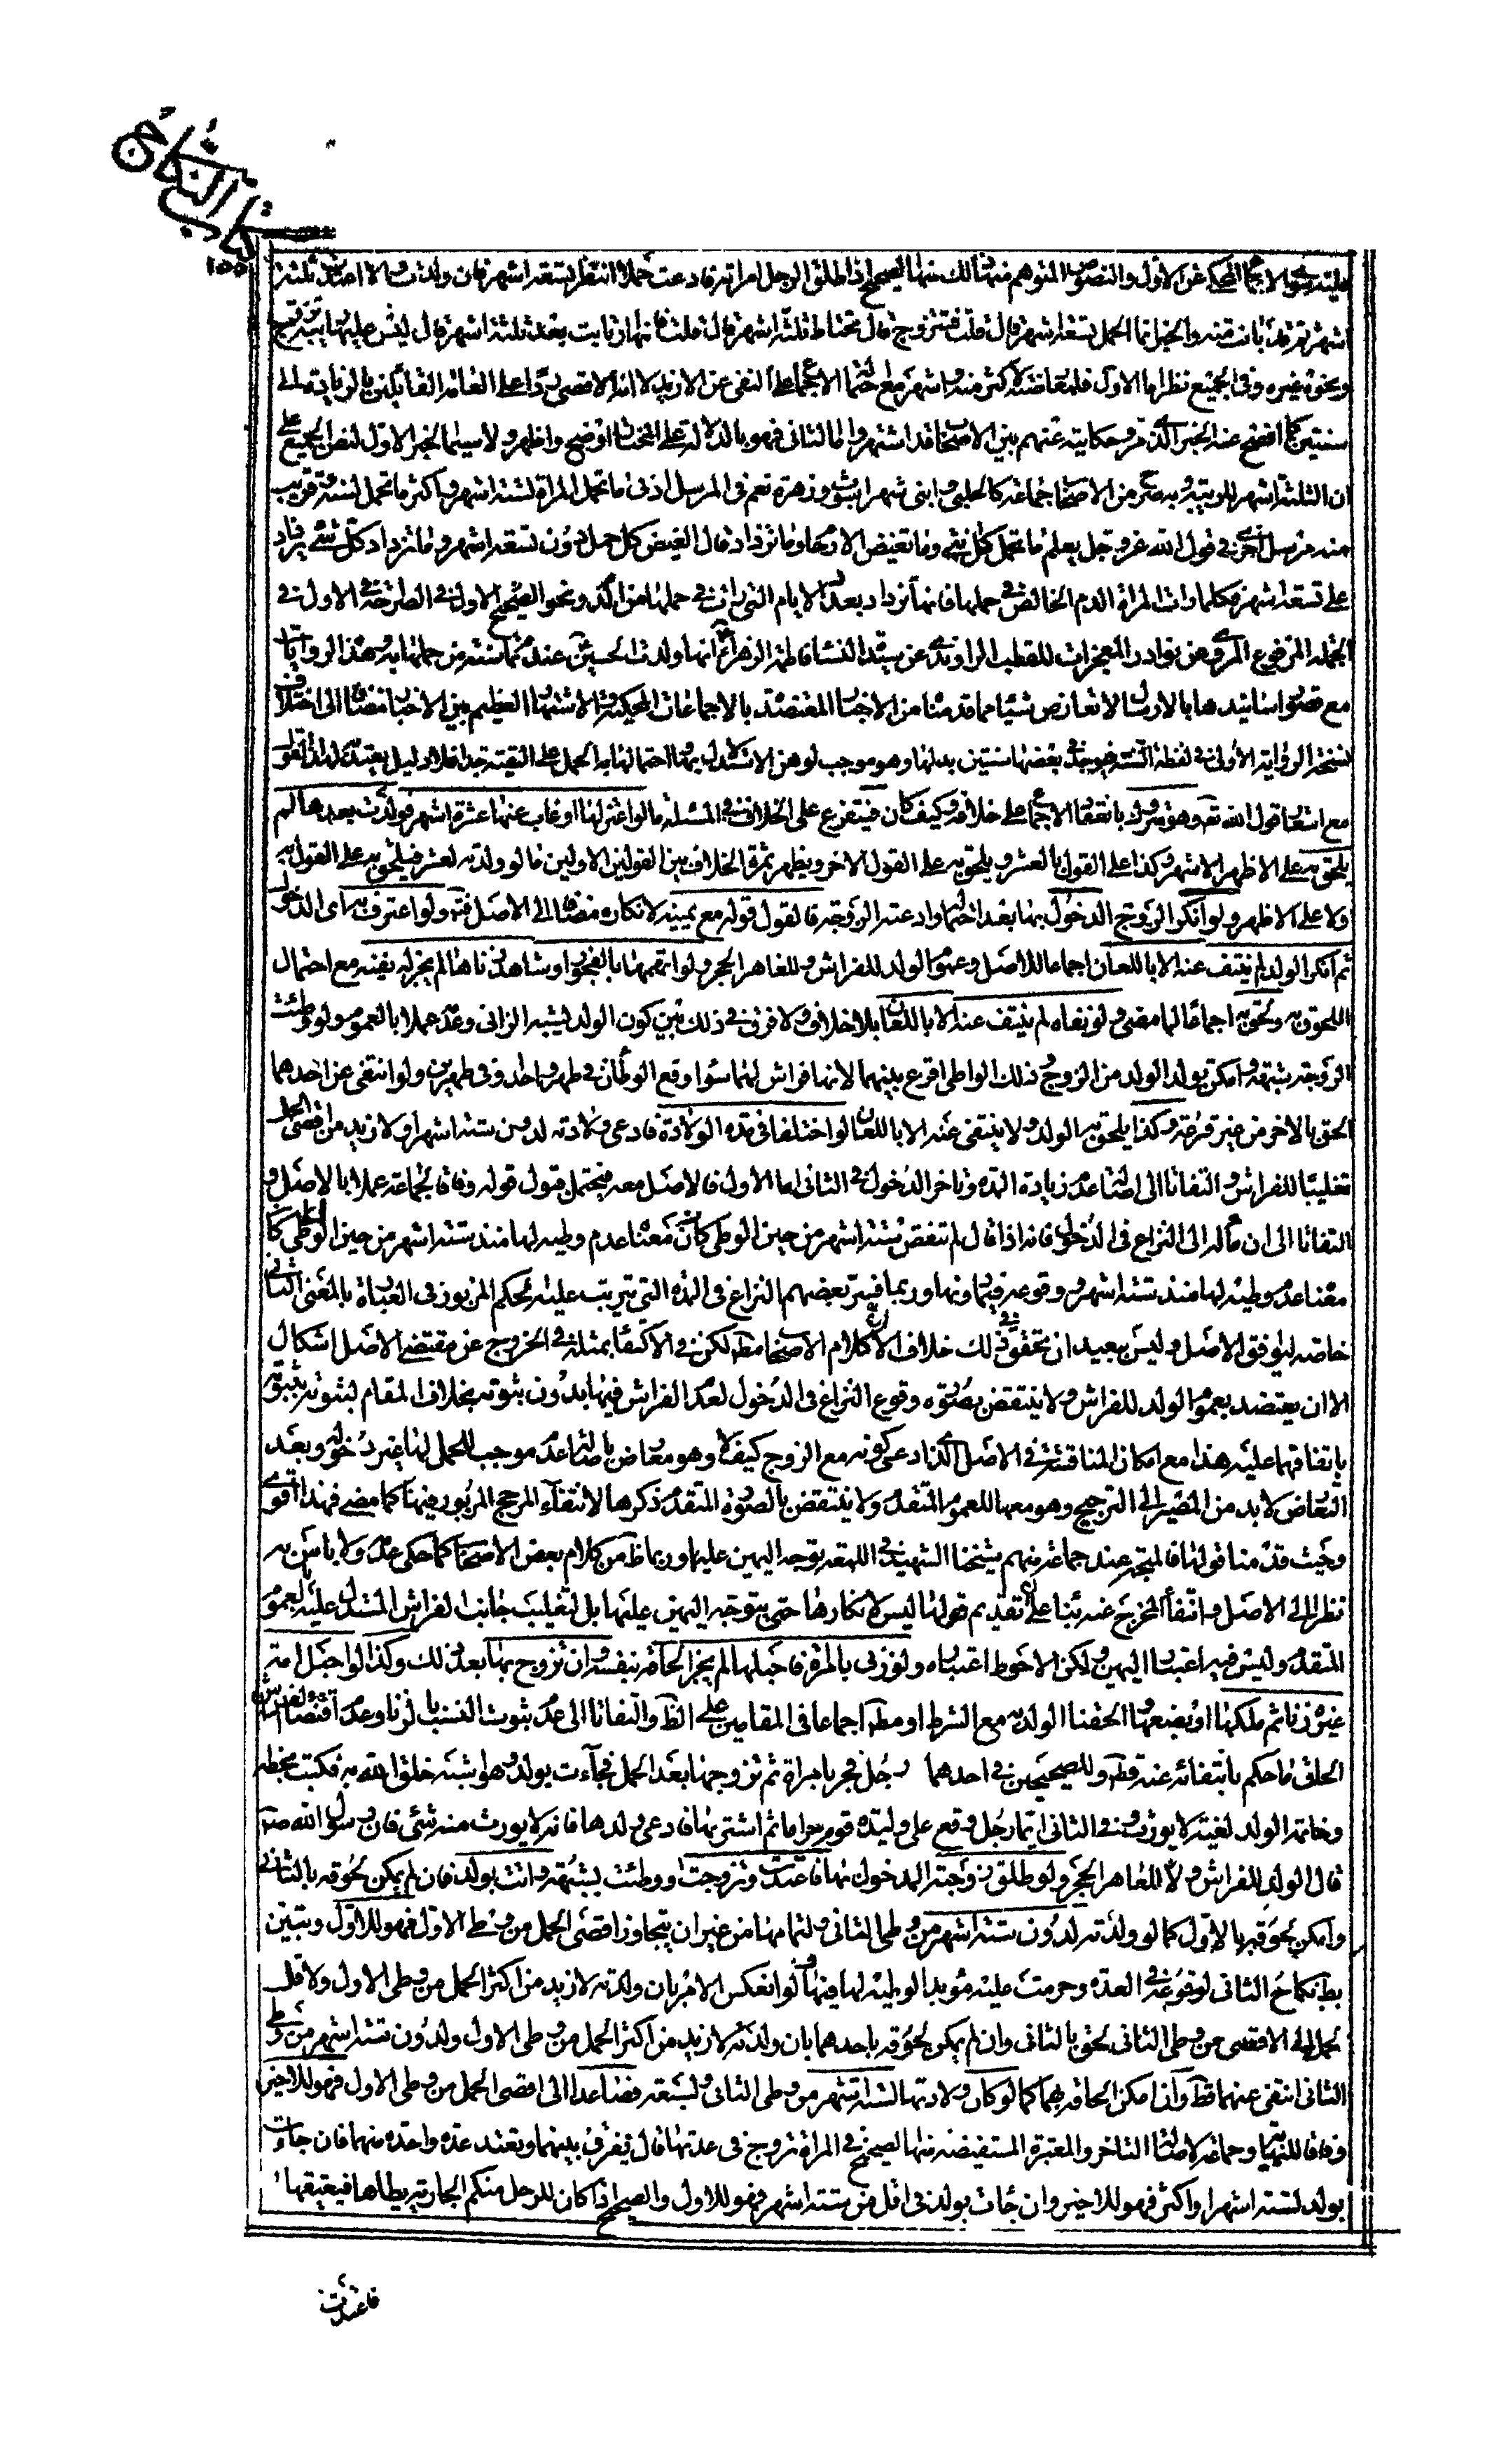 كتاب النكاح
١٥٥
عليه سوى الإجماع المحكى عن الأول والنصوص المتوهم منها ذلك منها الصحيح إذا طلق الرجل امراته فادعت حملا انتظر تسعة اشهر فان ولدت والا اعتدت ثلثة
اشهر ثم قد بانت منه والخبر انما الحمل تسعة اشهر قال قلت فتزوج قال تحتاط ثلثة اشهر قال قلت فانها ارتابت بعد ثلثة اشهر قال ليس عليها ريبة تزوج
ونحوه غيره وفى الجميع نظر اما الاول فلمعارضته باكثر منه واشهر مع احتمال الاجماع على النفى عن الازيد لا انه الاقصى ردا على العامة القائلين بالزيادة الى
سنتين كما افصح عنه الخبر الذى مر وحكايته عنهم بين الاصحاب قد اشتهر واما الثانى فهو بالدلالة على المختار اوضح واظهر ولا سيما الخبر الاول لنص الجميع على
ان الثلثة اشهر للريبة وبه صرح من الاصحاب جماعة كالحلبى وابنى شهراشوب وزهرة نعم فى المرسل ادنى ما تحمل المراة لستة اشهر واكثر ما تحمل لسنة وقريب
منه مرسل اخر فى قول الله عز وجل يعلم ما تحمل كل انثى وما تغيض الارحام وما تزداد قال الغيض كل حمل دون تسعة اشهر وما تزداد كل شئ يزداد
على تسعة اشهر فكلما رات المراة الدم الخالص فى حملها فانها تزداد بعدد الايام التى رات فى حملها من الدم ونحو الصحيح الاول فى الطرختى الاول فى
الجملة المرفوع المروى عن نوادر المعجزات للقطب الراوندى عن سيدة النساء فاطمة الزهراء ع انها ولدت الحسين ع عند تمام سنة من حملها به وهذه الروايات
مع قصور اسانيدها بالارسال لا تعارض شيئا مما قدمنا من الاخبار المعتضدة بالاجماعات المحكية والاشتهار العظيم بين الاخيار مضافا الى اختلاف
نسخة الرواية الاولى فى لفظة السنة فيوجد فى بعضها سنتين بدلها وهو موجب لوهن الاستدلال بها واحتمالها الحمل على التقية جدا فلا دليل يعتد به لهذا القول
مع اشعار قول الله تعـ وهو متروك بانعقاد الاجماع على خلافه وكيف كان فيتفرع على الخلاف فى المسئلة ما لو اعتزلها او غاب عنها عشرة اشهر فولدت بعدها لم
يلحق به على الاظهر الاشهر وكذا على القول بالعشر ويلحق به على القول الاخر ويظهر ثمرة الخلاف بين القولين الاولين فيما لو ولدته لعشر فيلحق به على القول به
ولا على الاظهر ولو انكر الزوج الدخول بها بعد احتماله وادعته الزوجة فالقول قوله مع يمينه لانكاره مضافا الى الاصل فيه ولو اعترف به اى الدخول
ثم انكر الولد لم ينتف عنه الا باللعان اجماعا للاصل وعموم الولد للفراش وللعاهر الحجر ولو اتهمها بالفجور او شاهد زناها لم يجز له نفيه مع احتمال
اللحوق به ولحق به اجماعا لما مضى ولو نفاه لم ينتف عنه الا باللعان بلا خلاف ولا فرق فى ذلك بين كون الولد يشبه الزانى وعدمه عملا بالعموم ولو وطئت
الزوجة بشبهة وامكن تولد الولد من الزوج وذلك الواطى اقرع بينهما لانها فراش لهما سواء وقع الوطئان فى طهر واحد وفى طهرين ولو انتفى عن احدهما
الحق بالاخر من غير قرعة وكذا يلحق به الولد ولا ينتفى عنه الا باللعان لو اختلفا فى مدة الولادة فادعى ولادته لدون ستة اشهر او لازيد من اقصى الحمل
تغليبا للفراش والتفاتا الى اصالة عدم زيادة المدة وتاخر الدخول فى الثانى اما الاول فالاصل معه فيحتمل قبول قوله وفاقا لجماعة عملا بالاصل و
التفاتا الى ان ماله الى النزاع فى الدخول فانه اذا قال لم تنقض ستة اشهر من حين الوطى كان معناه عدم وطيه لها منذ ستة اشهر من حين الوطى كما
معناه عدم وطيه لها منذ ستة اشهر وقوعه فيها ودونها وربما فسر بعضهم النزاع فى المدة التى يترتب عليه الحكم المزبور فى العبارة بالمعنى الثانى
خاصة ليوافق الاصل وليس ببعيد ان تحقق فى ذلك خلاف الا ان كلام الاصحاب مطـ لكن فى الاكتفاء بمثله فى الخروج عن مقتضى الاصل اشكال
الا ان يعتضد بعموم الولد للفراش ولا ينتقض بصورة وقوع النزاع فى الدخول لعدم الفراش فيها بدون ثبوته بخلاف المقام لثبوته بثبوته
باتفاقهما عليه هذا مع امكان المناقشة فى الاصل الذى ادعى كونه مع الزوج كيف لا وهو معارض باصالة عدم موجب للحمل لها غير دخوله وبعد
التعارض لابد من المصير الى الترجيح وهو معها للعموم المتقدم ولا ينتقض بالصورة المتقدم ذكرها لانتفاء المرجح المزبور فيها كما مضى فهذا اقوى
وحيث قدمنا قولها فالمتجه عند جماعة منهم شيخنا الشهيد فى اللمعة توجه اليمين عليها وربما ظـ من كلام بعض الاصحاب كما حكى عدمه ولا باس به
نظرا الى الاصل وانتفاء المخرج عنه بناء على ان تقديم قولها ليس لانكارها حتى يتوجه اليمين عليها بل لتغليب جانب الفراش المستدل عليه بعموم
المتقدم وليس فيه اعتبار اليمين ولكن الاحوط اعتباره ولو زنى بالمرئة فاحبلها لم يجز الحاقه بنفسه وان تزوج بها بعد ذلك وكذا لو احبل امة
غيره زنا ثم ملكها او بضعها الحقنا الولد به مع الشرط او مطـ اجماعا فى المقامين على الظـ والتفاتا الى عدم ثبوت النسب بالزنا وعدم اقتضاء الفراش
الحاق ما حكم بانتفائه عنه قطـ وللصحيحين فى احدهما رجل فجر بامراة ثم تزوجها بعد الحمل فجاءت بولد هو اشبه خلق الله به فكتب بخطه
وخاتمه الولد لغية لا يورث وفى الثانى ايما رجل وقع على وليدة قوم حراما ثم اشتريها فادعى ولدها فانه لا يورث منه شئ فان رسول الله صـ
قال الولد للفراش وللعاهر الحجر ولو طلق زوجته المدخول بها فاعتدت وتزوجت او وطئت بشبهة واتت بولد فان لم يمكن لحوقه بالثانى
وامكن لحوقه بالاول كما لو ولدته لدون ستة اشهر من وطى الثانى ولتمامها من غير ان يتجاوز اقصى الحمل من وطى الاول فهو للاول وتبين
بطـ نكاح الثانى لوقوعه فى العدة وحرمت عليه مؤبدا لوطيه لها فيها ولو انعكس الامر بان ولدته لازيد من اكثر الحمل من وطى الاول ولاقل
الحمل الى الاقصى من وطى الثانى لحق بالثانى وان لم يمكن لحوقه باحدهما بان ولدته لازيد من اكثر الحمل من وطى الاول ولدون ستة اشهر من وطى
الثانى انتفى عنهما قطـ وان امكن الحاقه بهما كما لو كان ولادتها لستة اشهر من وطى الثانى ولتسعة فصاعدا الى اقصى الحمل من وطى الاول فهو للاخير
وفاقا للنهاية وجماعة لاصالة التاخر والمعتبرة المستفيضة منها الصحيح فى المراة تزوج فى عدتها قال يفرق بينهما وتعتد عدة واحدة منهما فان جاءت
بولد لستة اشهر او اكثر فهو للاخير وان جاءت بولد فى اقل من ستة اشهر فهو للاول والصحيح اذا كان للرجل منكم الجارية يطاها فيعتقها
فاعتدت